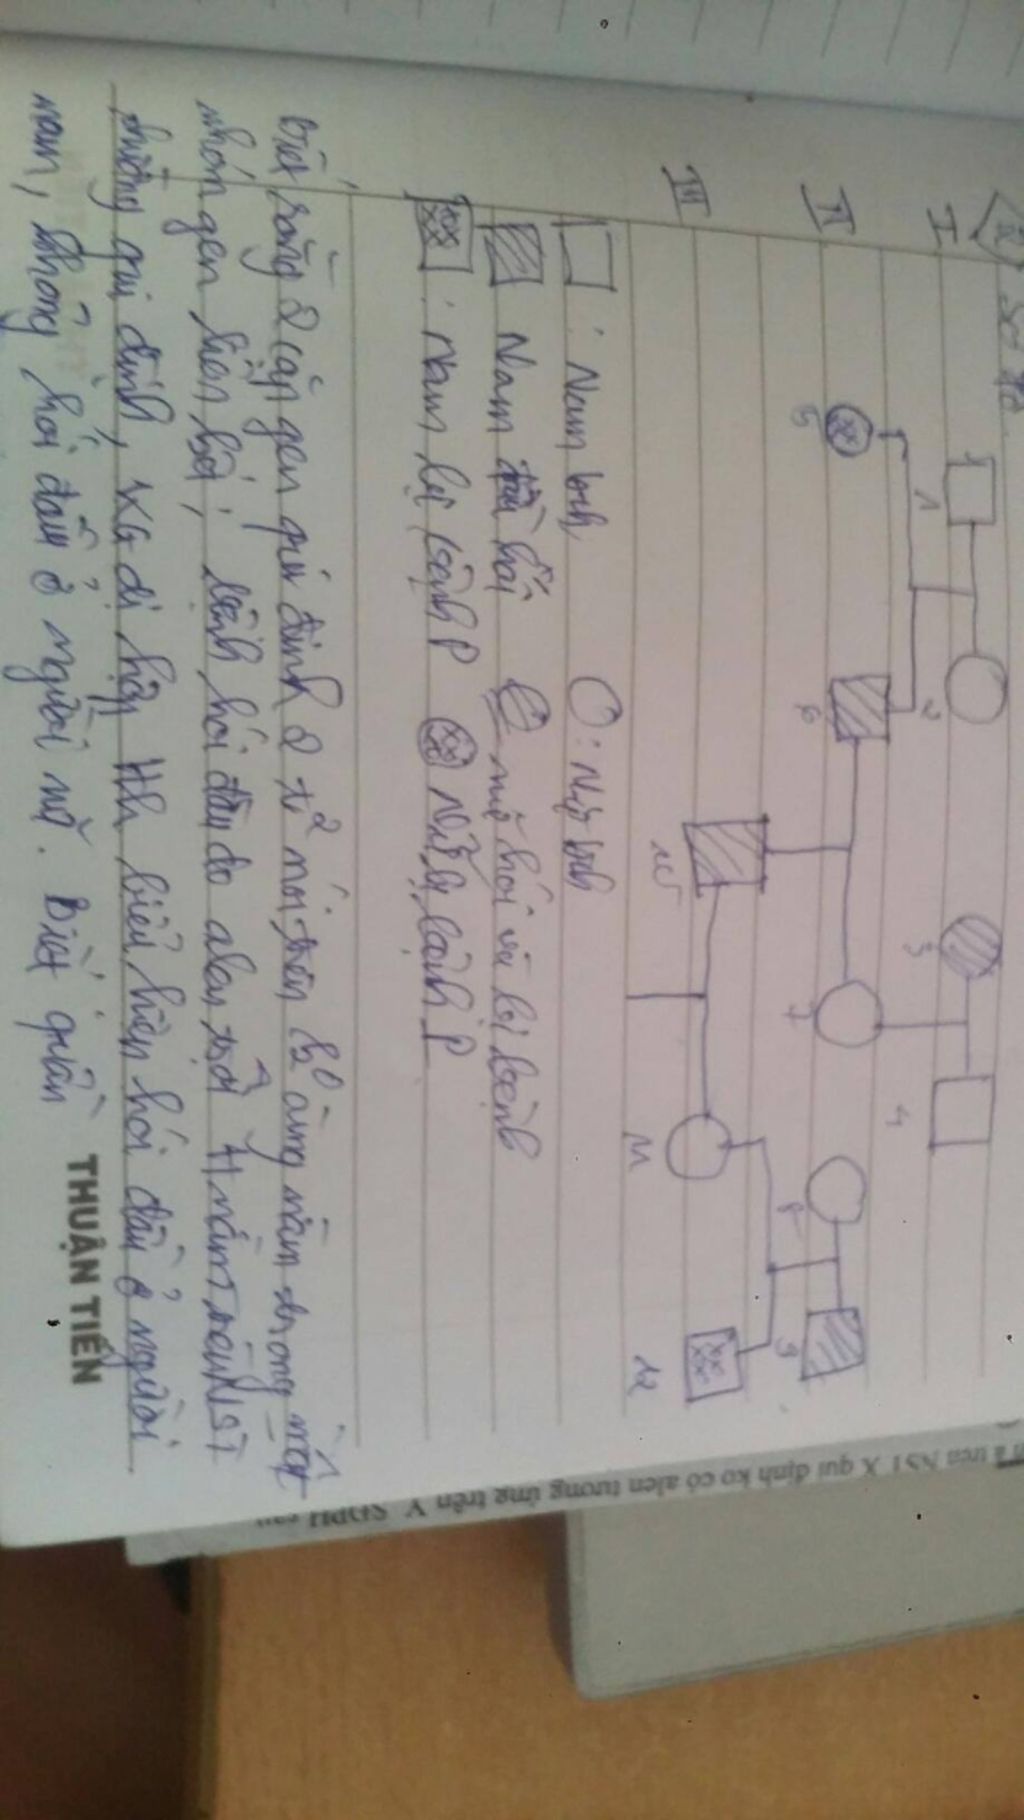 Sơ đồ
I
II
III
1
2
3
4
5
6
7
8
9
10
11
12
: Nam bth,
O : Nữ bth
Nam hói
nữ hói và bị bệnh
: Nam bị bệnh P
Nữ bị bệnh P
Biết rằng 2 cặp gen qui định 2 t² nói trên ko cùng nằm trong một
nhóm gen liên kết; bệnh hói đầu do alen trội H nằm trên NST
thường qui định, KG dị hợp Hh biểu hiện hói đầu ở người
nam, không hói đầu ở người nữ. Biết quần
THUẬN TIẾN
trên NST X qui định ko có alen tương ứng trên Y. SĐPH sau